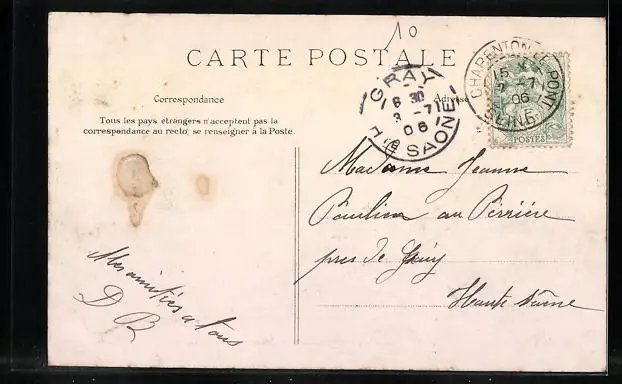 10
CARTE POSTALE
Correspondance
Adresse
Tous les pays étrangers n'acceptent pas la
correspondance au recto, se renseigner à la Poste.
GRAY
8 30
3 -7
06
Hte SAONE
CHARENTON-LE-PONT
15
2 -7
06
SEINE
POSTES
Madame Jeanne
au Perrière
près de
Haute Saône
Mes amitiés a tous
D B